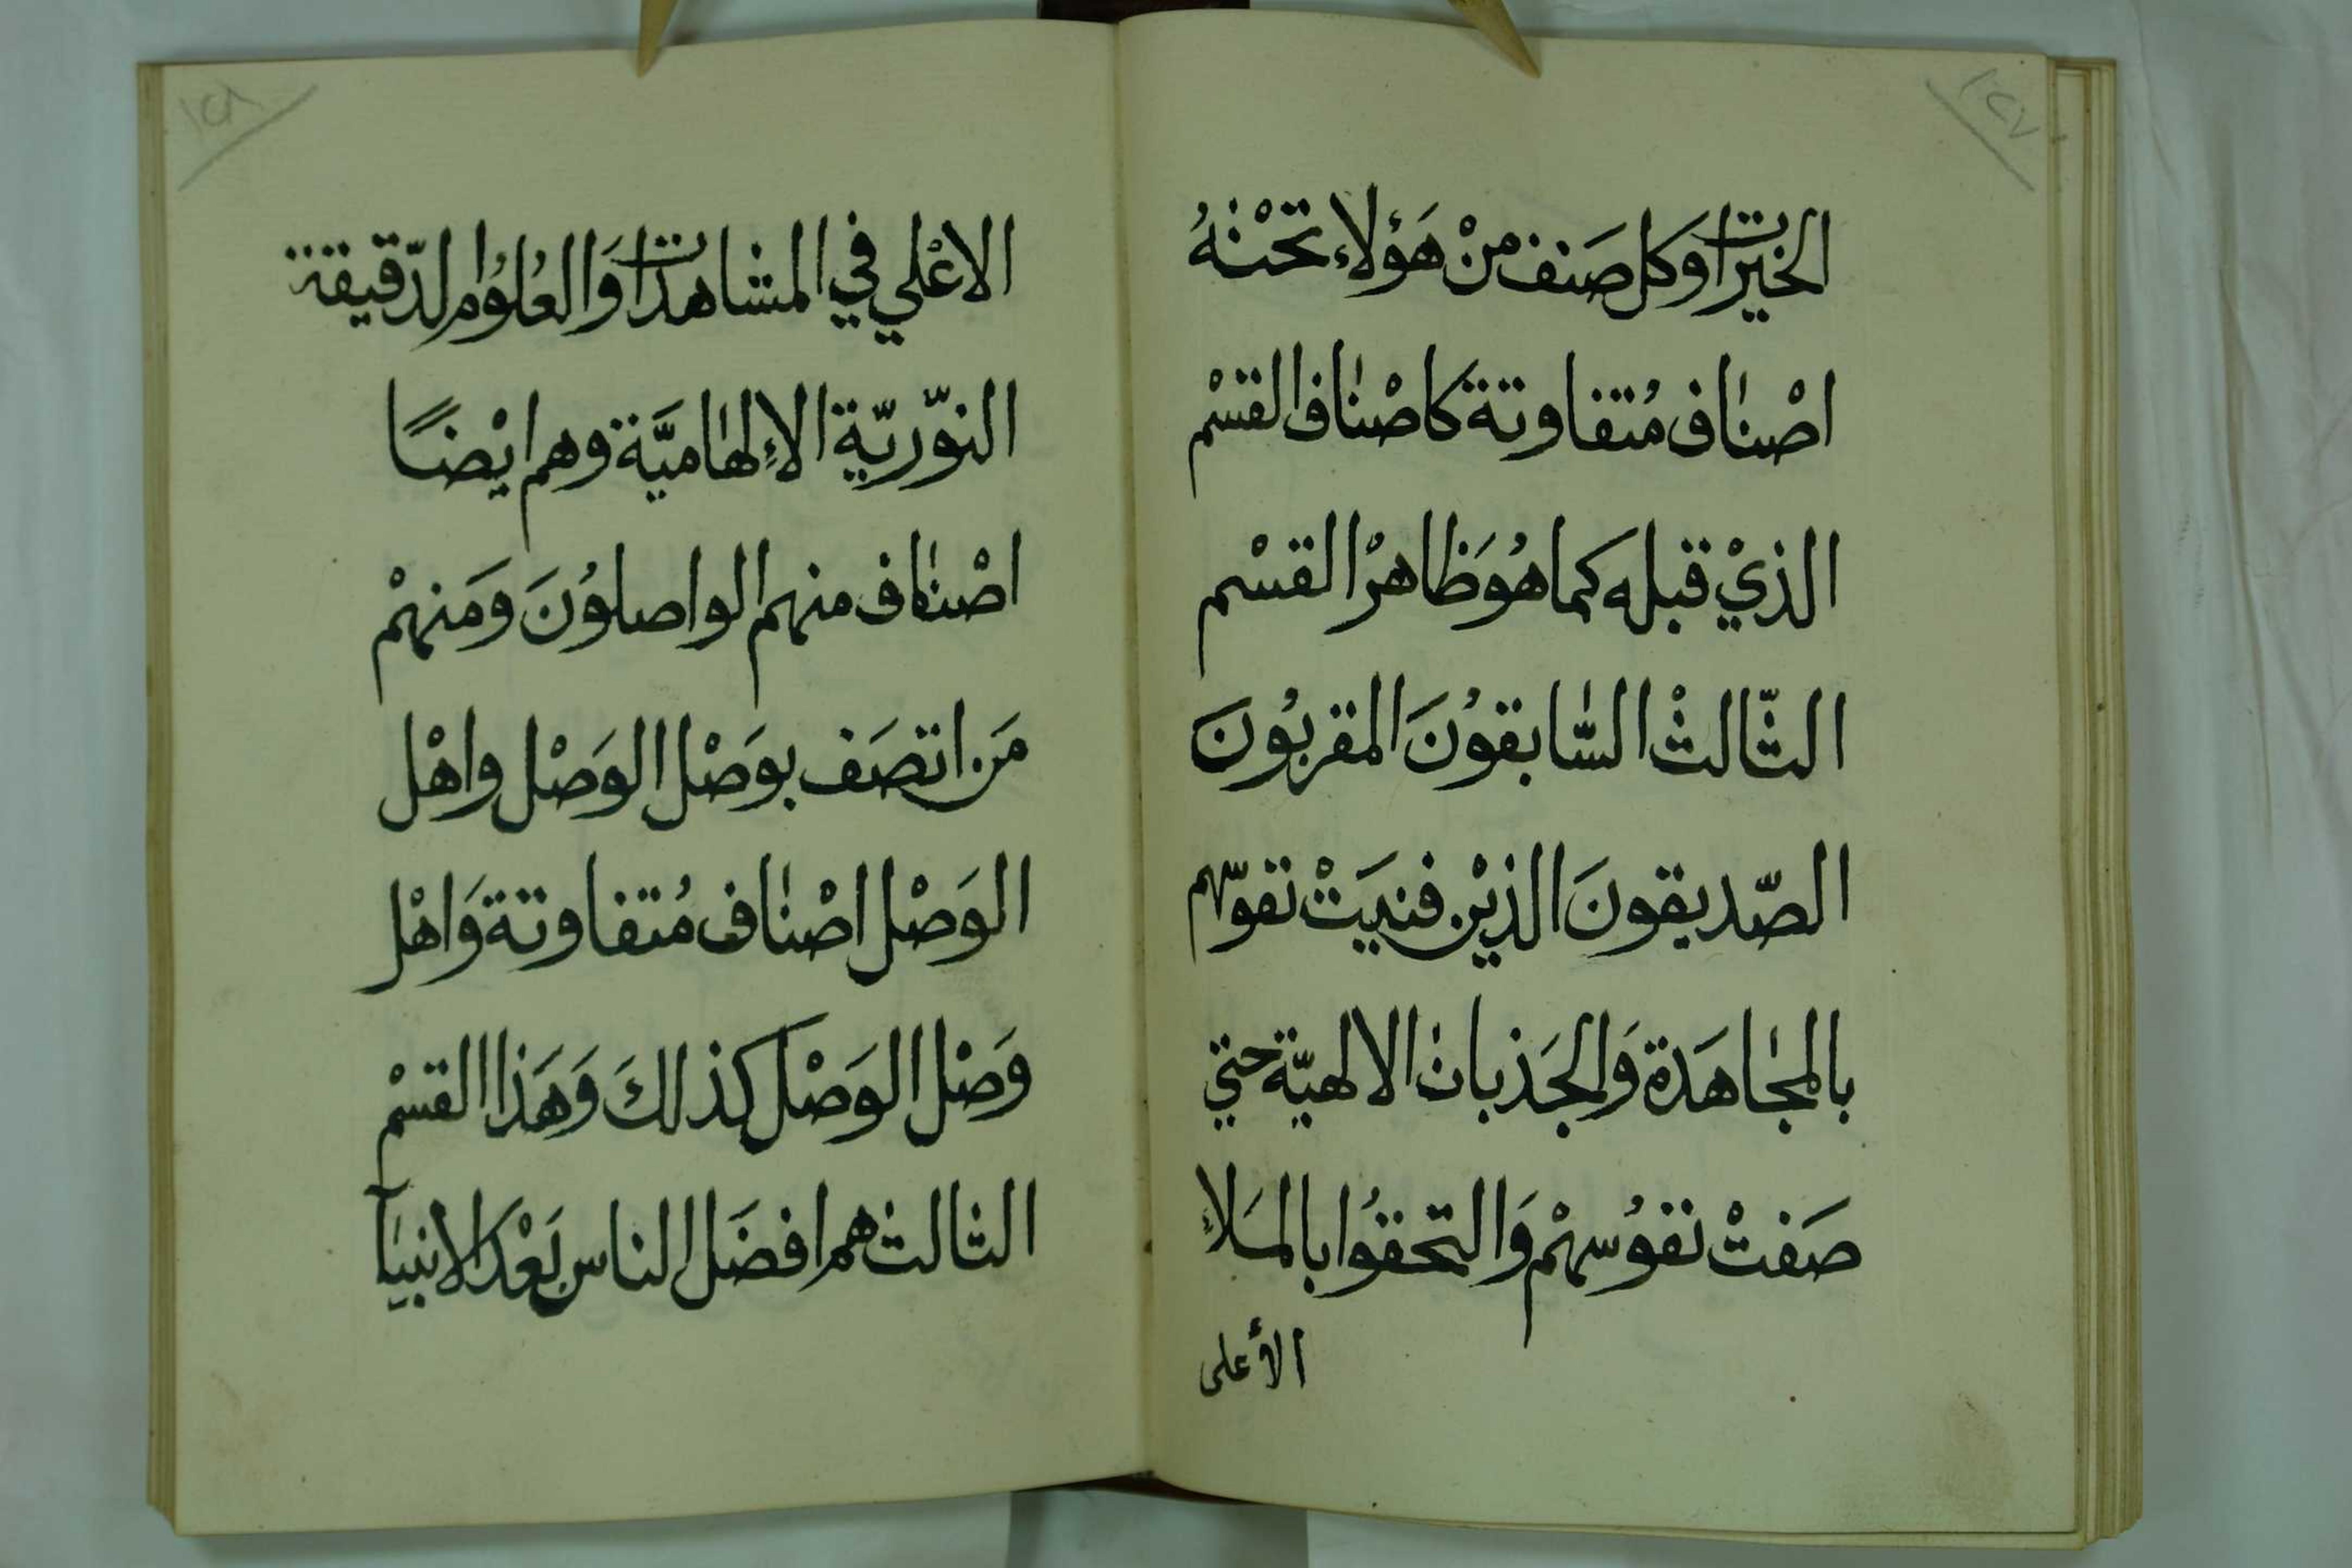 ١٢٧
الخيرات وكل صَنف منْ هَؤلاء تحْتهُ
اصْنٰاف مُتفاوتة كاصْنٰاف القسْم
الذيْ قبله كما هُوَ ظاهرْ القسْم
الثّالثْ السّٰابقوُنَ المقربُونَ
الصّديقونَ الذيْن فنيَتْ نقوّهم
بالمجٰاهَدة وَالجَذبات الالهيّة حتي
صَفتْ نفوُسهمْ وَالتحقوُا بالمَلاءِ
الأعلى
١٢٨
الاعْلي في المشاهدَات وَالعُلوُم الدّقيقة
النوّريّة الاِلهٰاميَّة وهم ايْضاً
اصْنٰاف منهم الواصلوُنَ وَمَنهمْ
مَن اتصَف بوَصْل الوَصْل واهْل
الوَصْل اصْنٰاف مُتفاوتة وَاهْل
وَصْل الوَصْل كذلكَ وَهَذا القسْم
الثالث هم افضَل الناس بَعْدَ الانبيٰآ